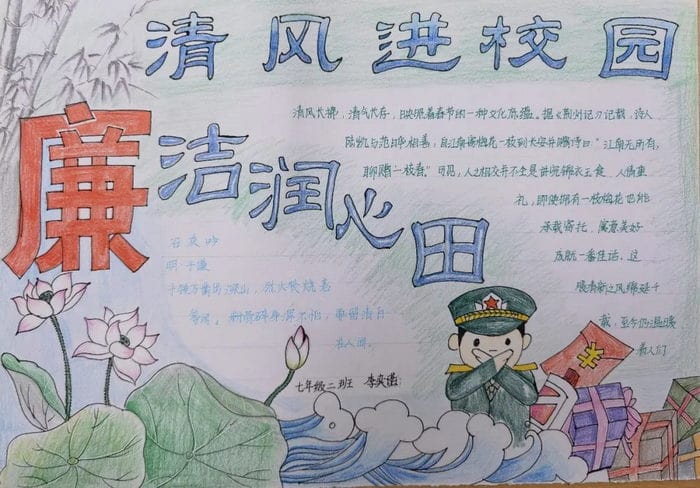 清风进校园
廉洁润心田
清风长拂，清气长存，映照着春节的一种文化底蕴。据《荆州记》记载，诗人
陆凯与范晔相善，自江南寄梅花一枝到长安并赠诗曰"江南无所有，
聊赠一枝春"可见，人之相交并不全是讲究锦衣玉食 人情重
礼，即使拥有一枝梅花也能
承载寄托，寓意美好
成就一番佳话，这
股清新之风绵延千
载，至今仍温暖
着人们
石灰吟
明·于谦
千锤万凿出深山，烈火焚烧若
等闲。粉骨碎身浑不怕，要留清白
在人间。
七年级二班 李